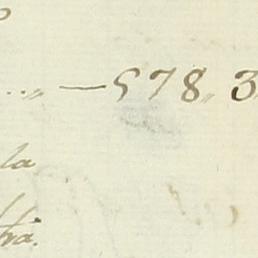 ..„ — 578„ 3
la
tra.